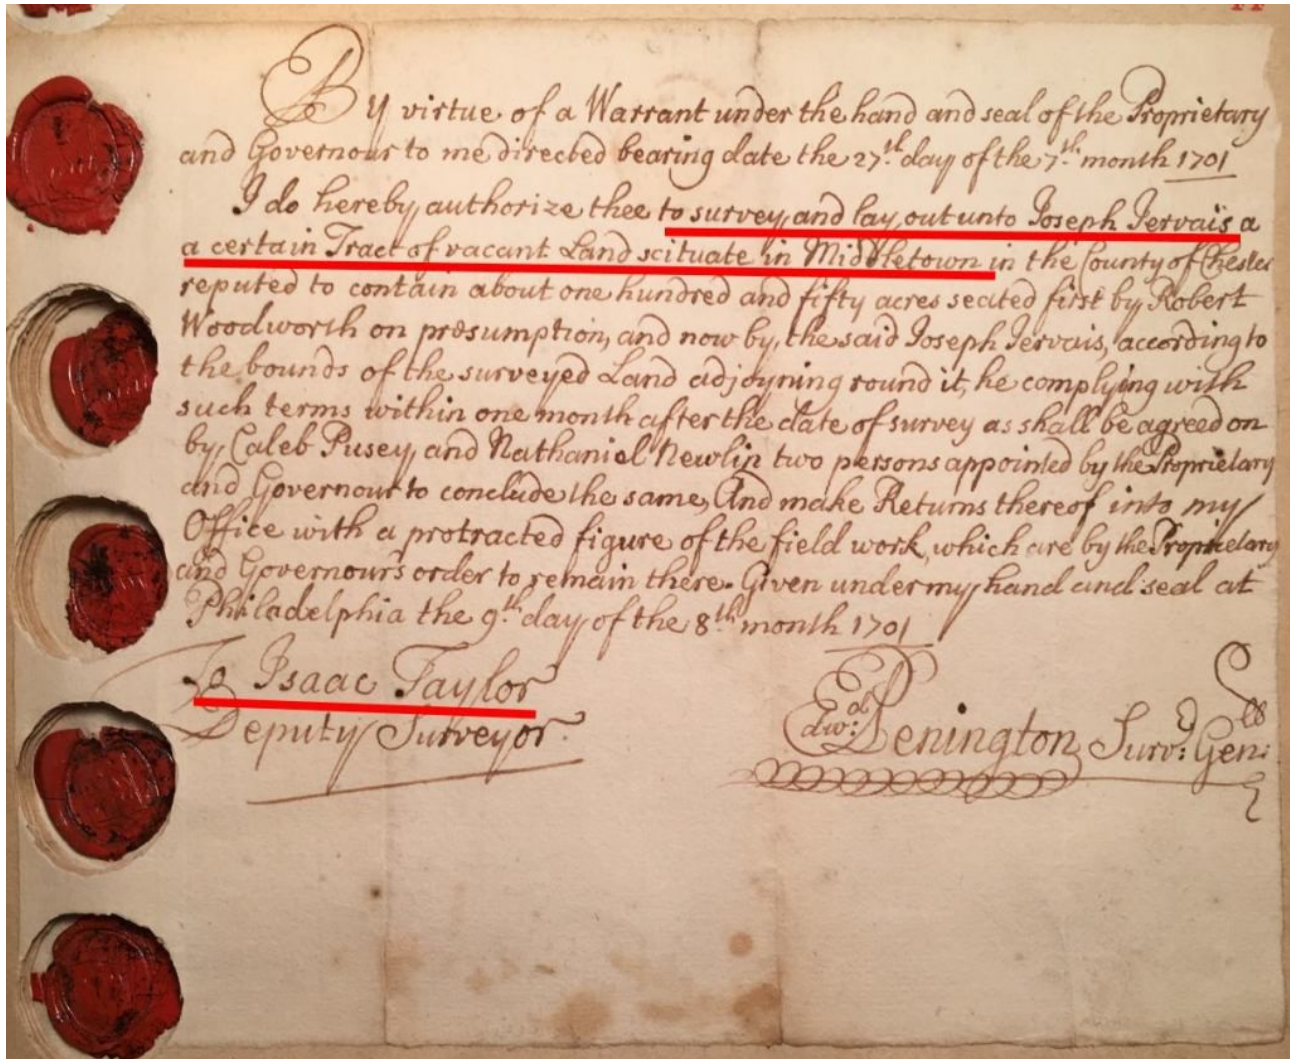 By virtue of a Warrant under the hand and seal of the Proprietary
and Governour to me directed bearing date the 27th day of the 7th month 1701
I do hereby authorize thee to survey and lay out unto Joseph Jervais a
a certain Tract of vacant Land scituate in Middletown in the County of Chester
reputed to contain about one hundred and fifty acres seated first by Robert
Woodworth on presumption, and now by the said Joseph Jervais, according to
the bounds of the surveyed Land adjoyning round it, he complying with
such terms within one month after the date of survey as shall be agreed on
by Caleb Pusey and Nathaniel Newlin two persons appointed by the Proprietary
and Governour to conclude the same, And make Returns thereof into my
Office with a protracted figure of the field work, which are by the Proprietary
and Governours order to remain there. Given under my hand and seal at
Philadelphia the 9th day of the 8th month 1701
To Isaac Taylor
Deputy Surveyor.
Edwd Penington Survr Gen: